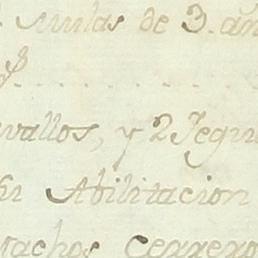 mulas de 3. añ
vallos, y 2 Yegu
Abilitacion
machos cerrero